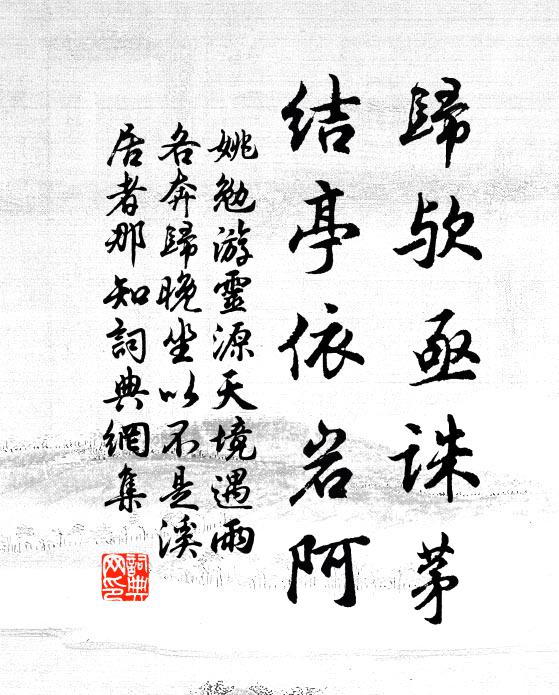 歸欤亟誅茅
结亭依岩阿
姚勉游靈源天境遇雨
各奔歸晚坐以不是溪
居者那知詞典網集
詞典
网印